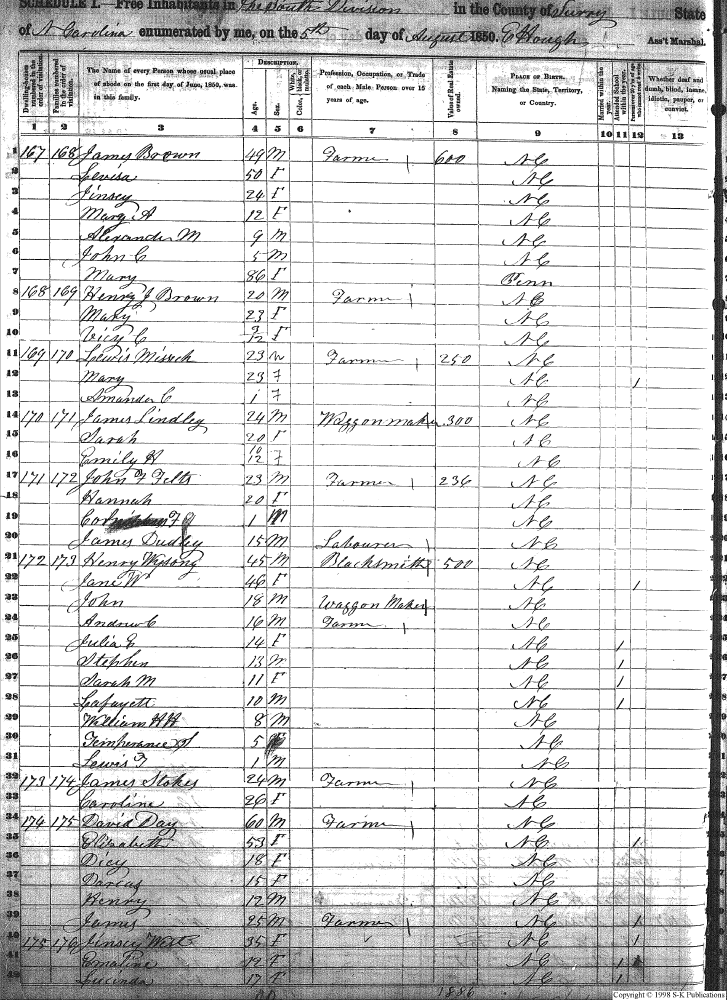 SCHEDULE I.—Free Inhabitants in The South Division in the County of Surry State
of N Carolina enumerated by me, on the 5th day of August 1850. C Hough Ass't Marshal.
Dwelling-houses numbered in the order of visitation.
Families numbered in the order of visitation.
The Name of every Person whose usual place of abode on the first day of June, 1850, was in this family.
DESCRIPTION.
Age.
Sex.
Color, White, black, or mulatto.
Profession, Occupation, or Trade of each Male Person over 15 years of age.
Value of Real Estate owned.
PLACE OF BIRTH. Naming the State, Territory, or Country.
Married within the year.
Attended School within the year.
Whether deaf and dumb, blind, insane, idiotic, pauper, or convict.
1 2 3 4 5 6 7 8 9 10 11 12 13
1 167 168 James Brown 49 M Farmer 600 NC
2 Levisa 50 F NC
3 Jinsey 24 F NC
4 Mary A 12 F NC
5 Alexander M 9 M NC
6 John C 5 M NC
7 Mary 86 F Penn
8 168 169 Henry J Brown 20 M Farmer NC
9 Mary 23 F NC
10 Vicy C 9/12 F NC
11 169 170 Lewis 23 M Farmer 250 NC
12 Mary 23 F NC 1
13 Amander C 1 F NC
14 170 171 James Lindley 24 M Waggon maker 300 NC
15 Sarah 20 F NC
16 Emily H 10/12 F NC
17 171 172 John F Felts 23 M Farmer 236 NC
18 Hannah 20 F NC
19 1 M NC
20 James Dudley 15 M Labourer NC
21 172 173 Henry Wesong 45 M Blacksmith 500 NC
22 Jane W 46 F NC 1
23 John 18 M Waggon Maker NC
24 Andrew C 16 M Farmer NC
25 Julia E 14 F NC 1
26 Stephen 13 M NC 1
27 Sarah M 11 F NC 1
28 Lafayett 10 M NC 1
29 William H H 8 M NC
30 Temperance 5 F NC
31 Lewis F 1 M NC
32 173 174 James Stokes 24 M Farmer NC
33 Caroline 26 F NC
34 174 175 David Day 60 M Farmer NC
35 Elizabeth 53 F NC 1
36 Dicy 18 F NC
37 Darcus 15 F NC
38 Henry 12 M NC
39 James 25 M Farmer NC 1
40 175 176 Jinsey West 35 F NC 1
41 Emaline 12 F NC 1 1
42 Lucinda 17 F NC 1
1886
Copyright © 1998 S-K Publications